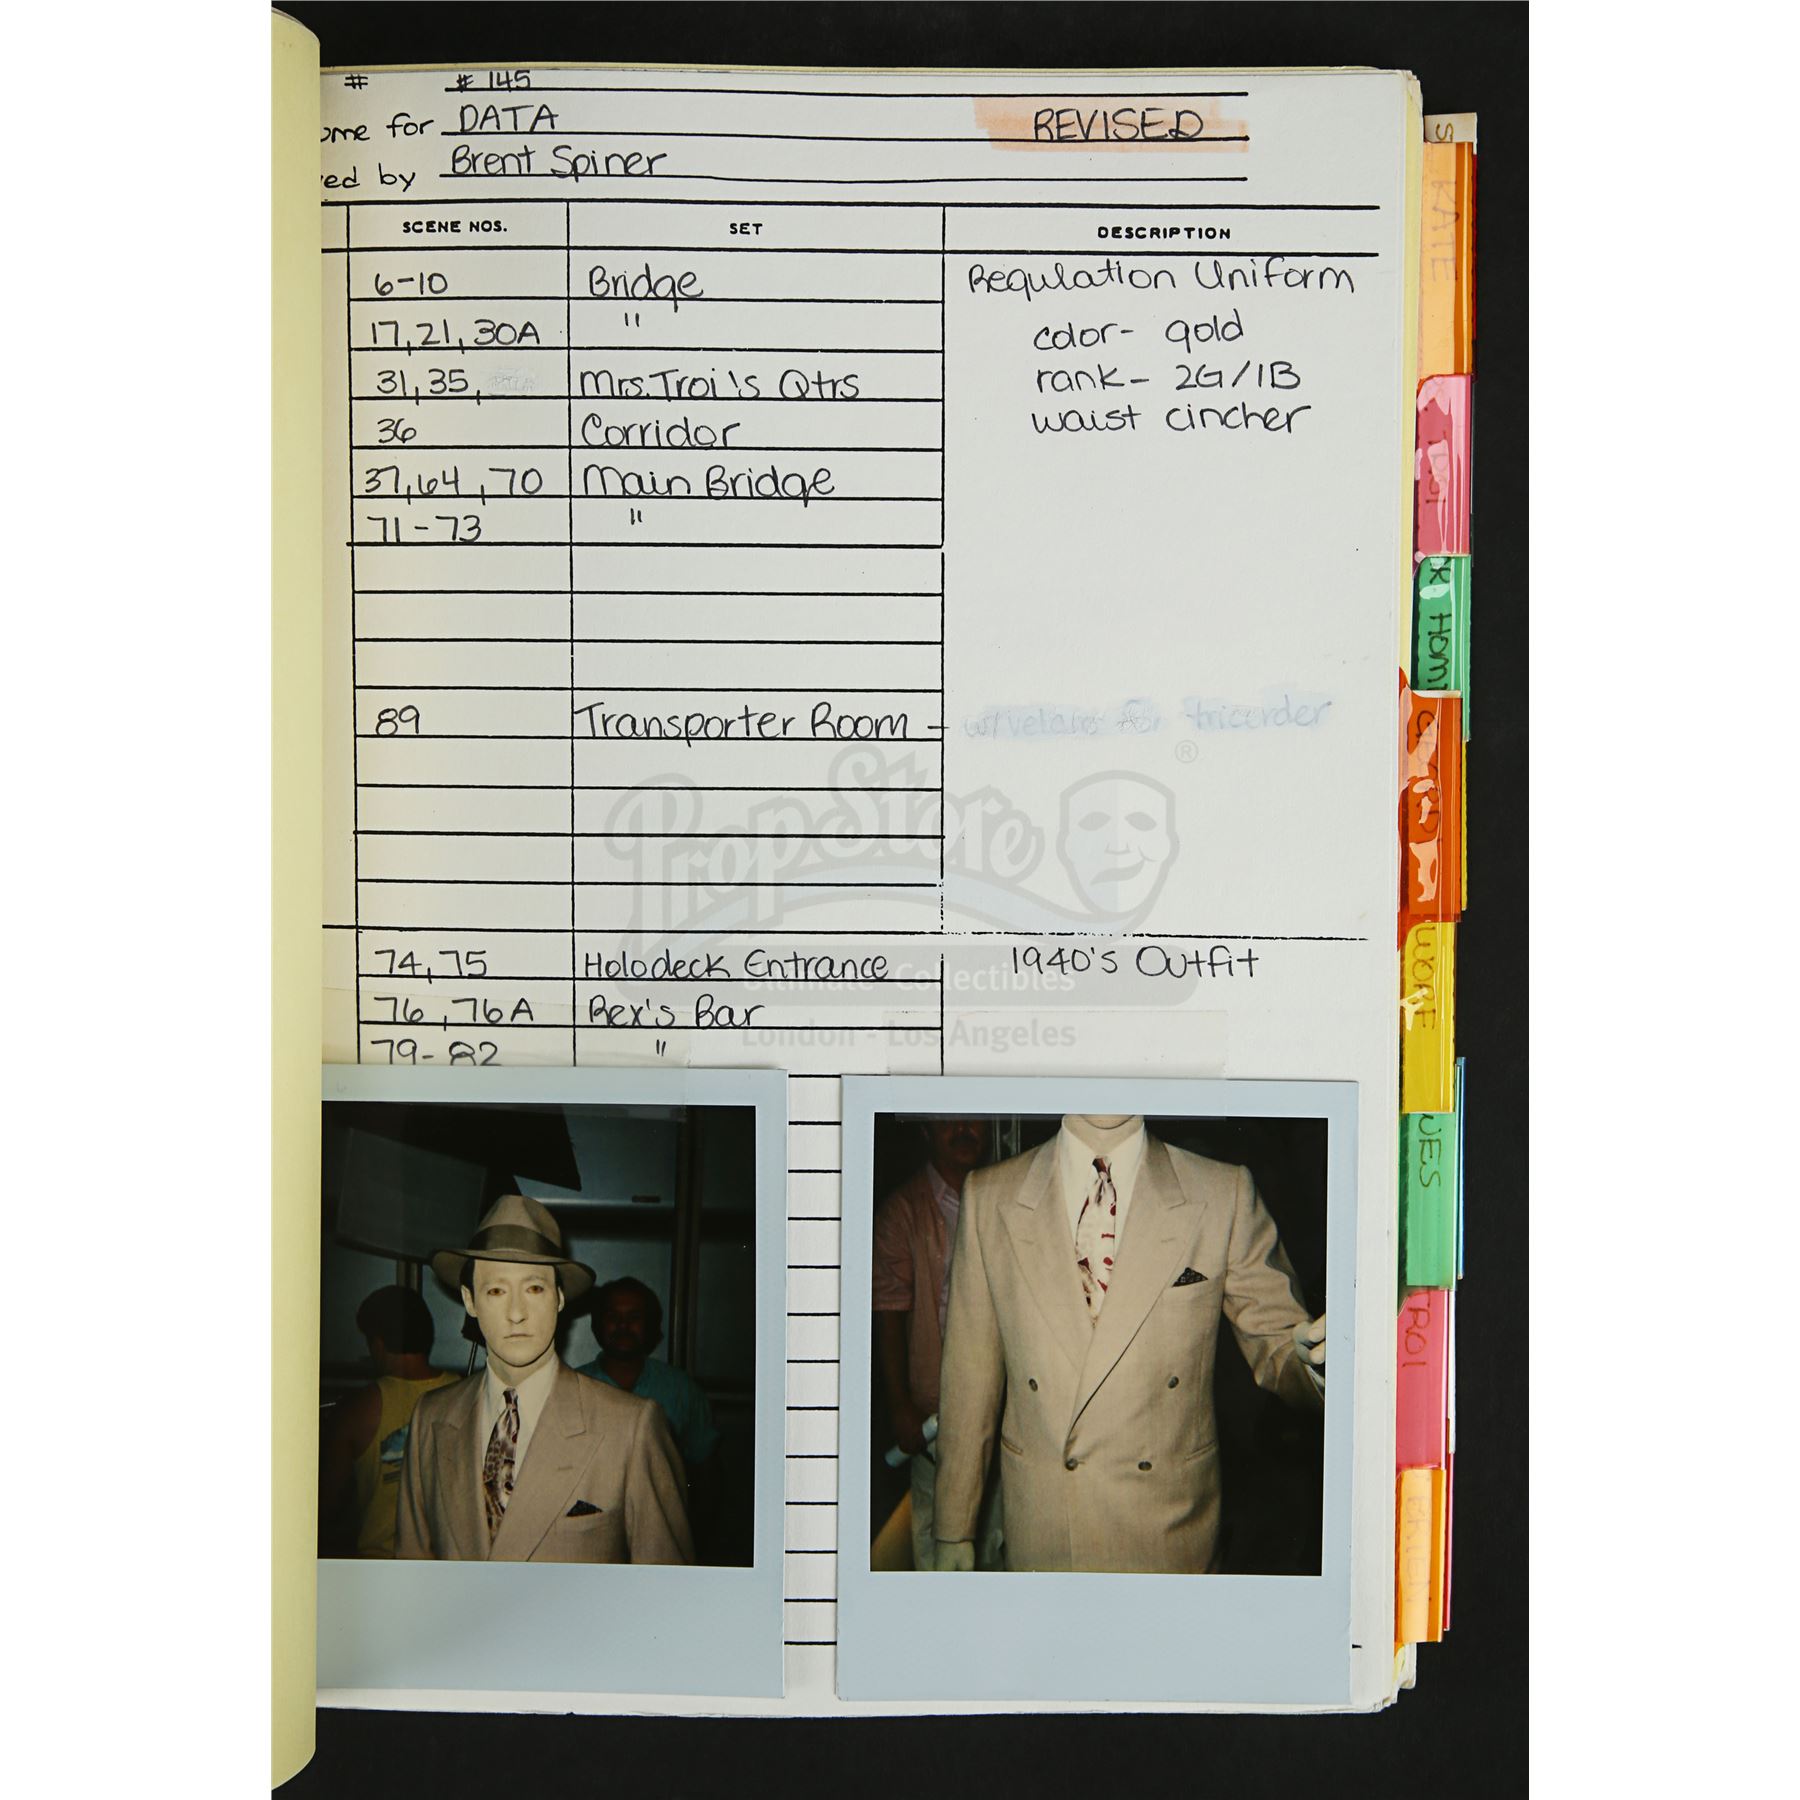 # # 145
ome for DATA REVISED
ed by Brent Spiner
SCENE NOS. SET DESCRIPTION
6-10 Bridge Regulation Uniform
17, 21, 30A " color- gold
31, 35, Mrs. Troi's Qtrs rank- 2G/1B
36 Corridor waist cincher
37, 64, 70 Main Bridge
71-73 "
89 Transporter Room - w/velcro for tricorder
74, 75 Holodeck Entrance 1940's Outfit
76, 76A Rex's Bar
79-82 "
PropStore ®
Ultimate Collectibles
London - Los Angeles
S
KATE
K HOM
WORF
UES
TROI